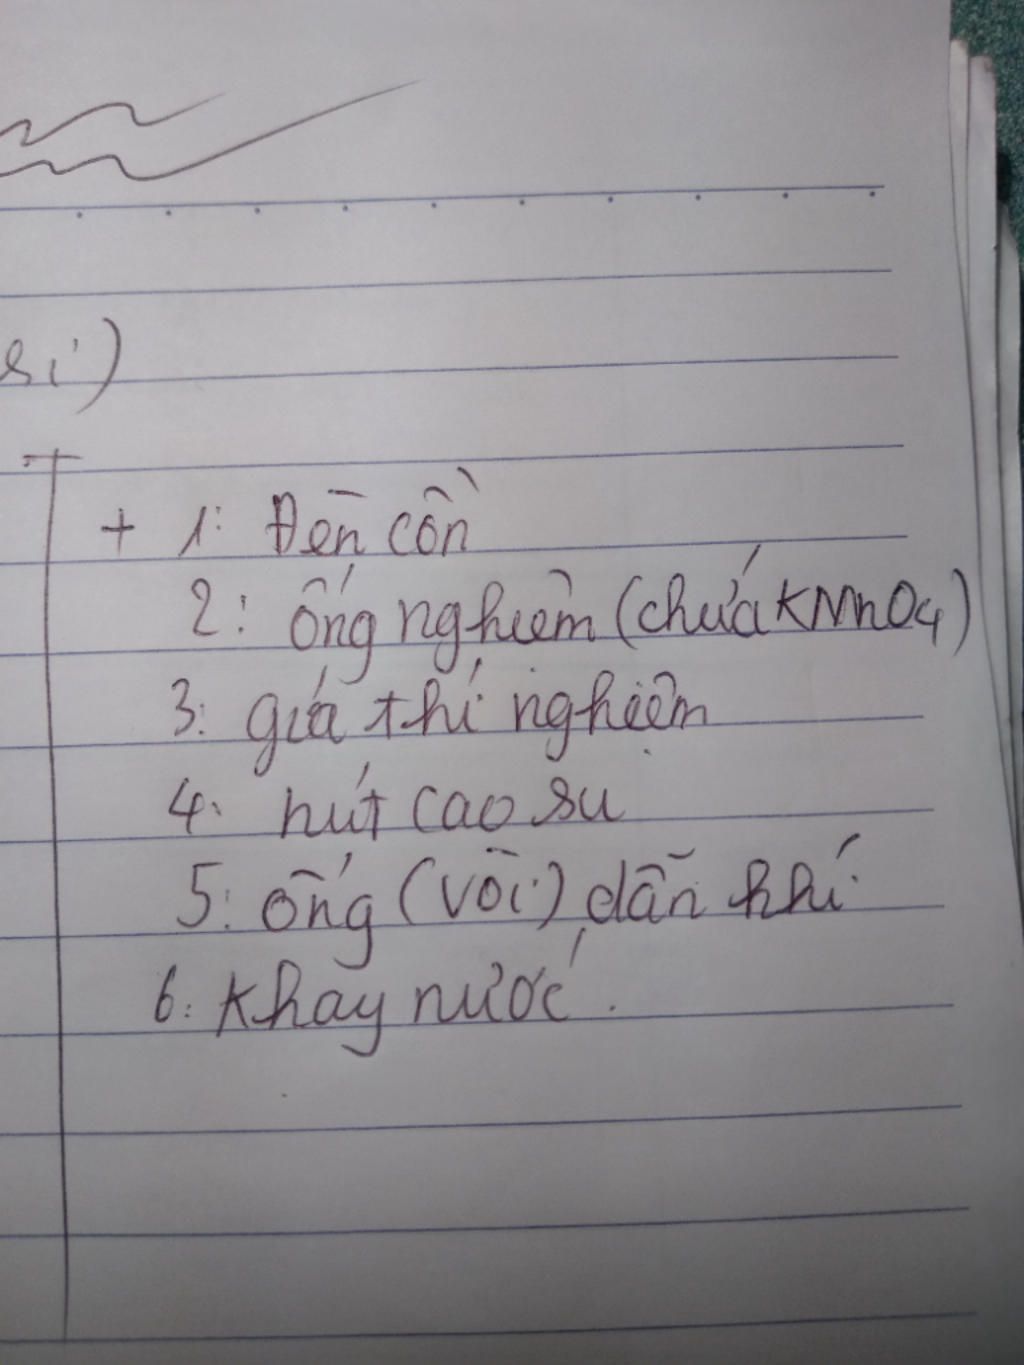 si)
+ 1: Đèn cồn
2: ống nghiệm (chứa KMnO4)
3: giá thí nghiệm
4: nút cao su
5: ống (vòi) dẫn khí
6: Khay nước.